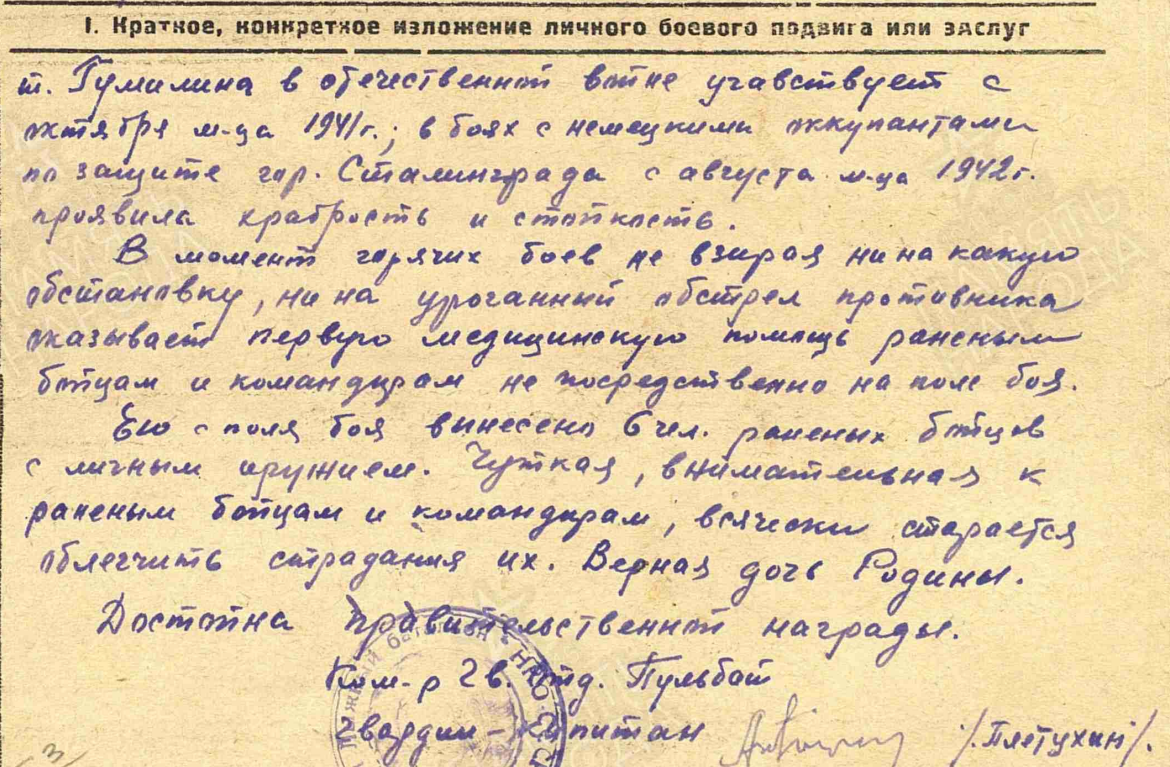 I. Краткое, конкретное изложение личного боевого подвига или заслуг
т. Гумилина в отечественной войне учавствует с
октября м-ца 1941г.; в боях с немецкими оккупантами
по защите гор. Сталинграда с августа м-ца 1942г.
проявила храбрость и стойкость.
В момент горячих боев не взирая ни на какую
обстановку, ни на ураганный обстрел противника
оказывает первую медицинскую помощь раненым
бойцам и командирам не посредственно на поле боя.
Ею с поля боя винесено 6 чел. раненых бойцов
с личным оружием. Чуткая, внимательная к
раненым бойцам и командирам, всячески старается
облегчить страдания их. Верная дочь Родины.
Достойна правительственной награды.
Ком-р Гв. Отд. Пульбат
гвардии - капитан /Плетухин/.
ПАМЯТЬ
НАРОДА